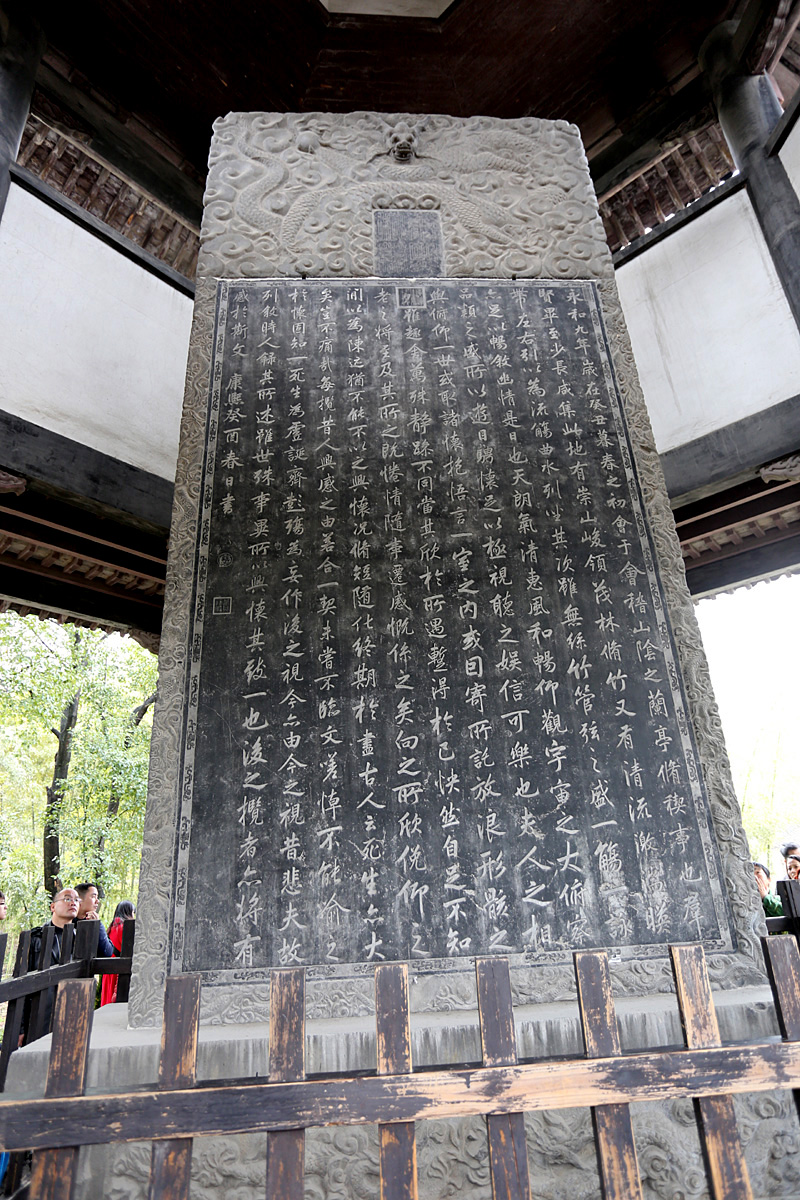 永和九年歲在癸丑暮春之初會于會稽山陰之蘭亭脩禊事也羣
賢畢至少長咸集此地有崇山峻領茂林脩竹又有清流激湍暎
帶左右引以為流觴曲水列坐其次雖無絲竹管弦之盛一觴一詠
亦足以暢敘幽情是日也天朗氣清惠風和暢仰觀宇宙之大俯察
品類之盛所以遊目騁懷足以極視聽之娛信可樂也夫人之相
與俯仰一世或取諸懷抱悟言一室之內或因寄所託放浪形骸之
雖趣舍萬殊靜躁不同當其欣於所遇蹔得於己怏然自足不知
老之將至及其所之既惓情隨事遷感慨係之矣向之所欣俛仰之
間以為陳迹猶不能不以之興懷況脩短隨化終期於盡古人云死生亦大
矣豈不痛哉每攬昔人興感之由若合一契未嘗不臨文嗟悼不能喻之
於懷固知一死生為虛誕齊彭殤為妄作後之視今亦由今之視昔悲夫故
列敘時人錄其所述雖世殊事異所以興懷其致一也後之攬者亦將有
感於斯文 康熙癸酉春日書